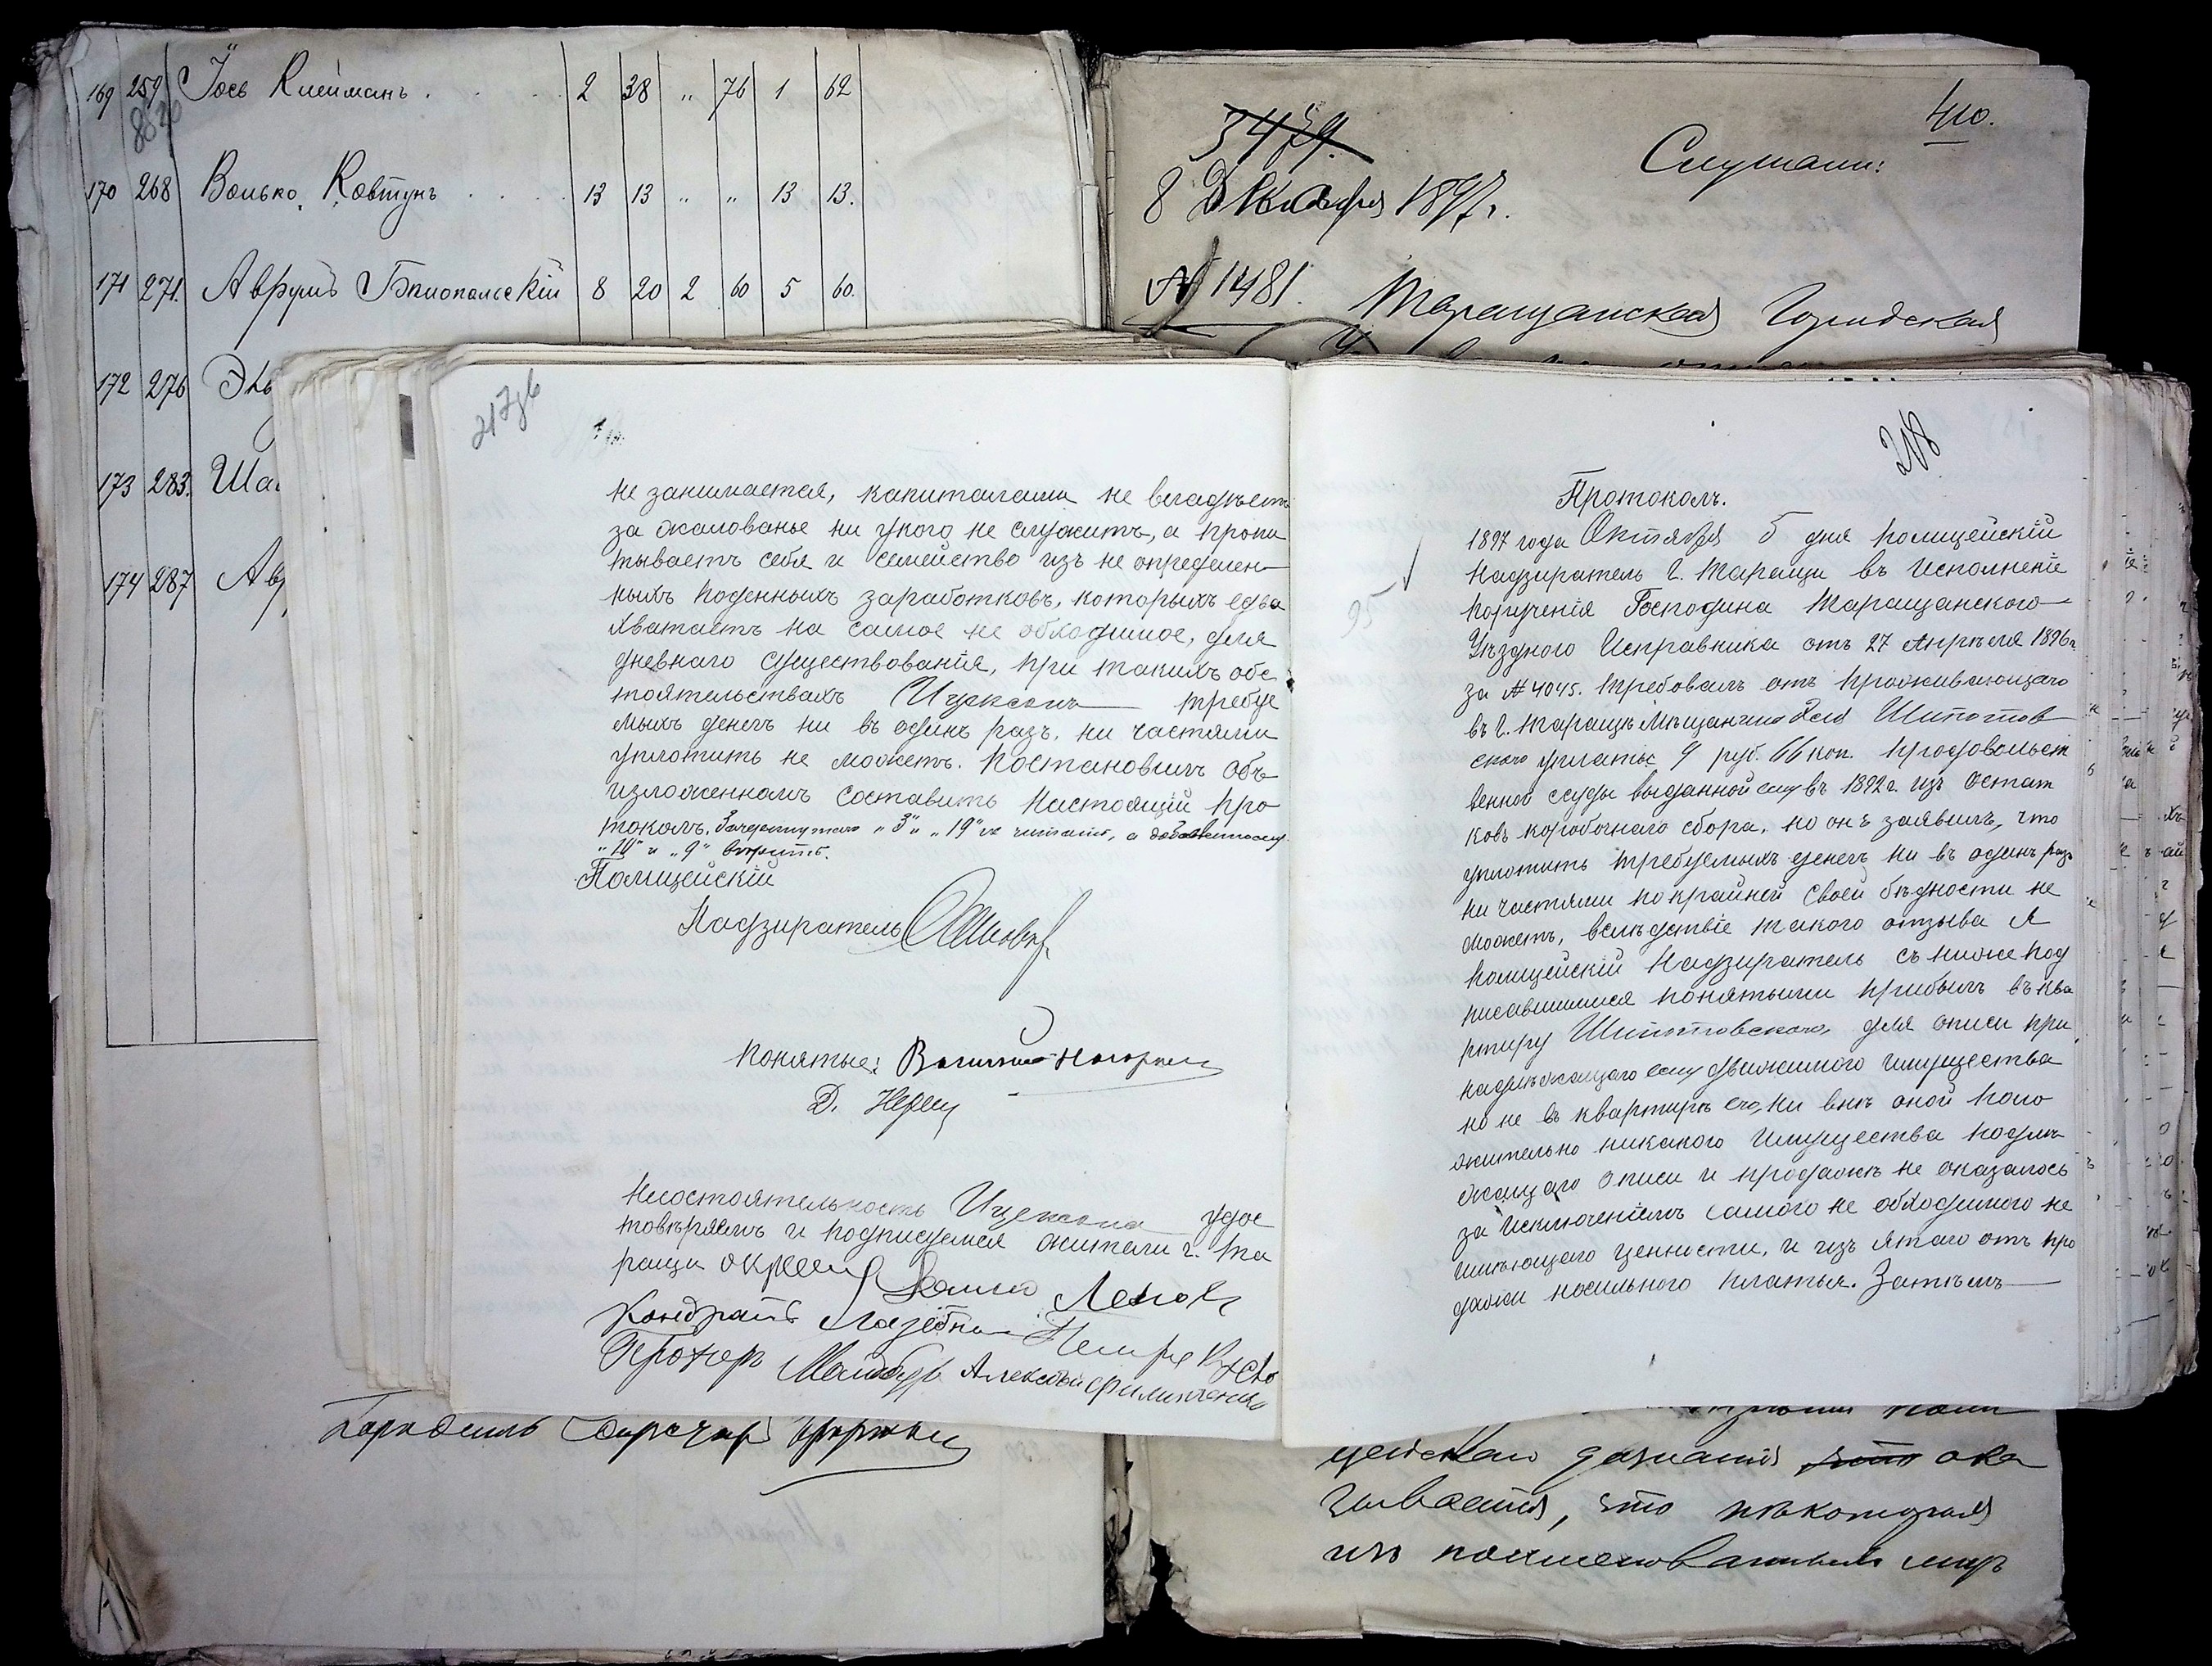 169 259 Іось Клейманъ . . . 2 38 " 76 1 62
170 268 Волько Ковтунъ . . . 13 13 " " 13 13.
171 271. Аврумъ Тѣпиопольскій 8 20 2 60 5 60.
172 276
173 283.
174 287
410.
Слушали:
8 Декабря 1897 г.
№ 1481.
Таращанская Городская
217об
не занимается, капиталами не владѣетъ
за жалованье ни укого не служитъ, а пропи
тываетъ себя и семейство изъ не определен
ныхъ поденныхъ заработковъ, которыхъ едва
хватаетъ на самое не обходимое, для
дневнаго существованія, при такихъ обс
тоятельствахъ Ицексонъ требуе
мыхъ денегъ ни въ одинъ разъ, ни частями
уплотить не можетъ. Постановилъ Объ
изложенномъ составить настоящій про
токолъ. Зачеркнутаго „3" и „19" не читать, а добавленному
„10" и „9" вѣрить.
Полицейскій
Надзиратель
Понятые:
Несостоятельность Ицексона удос
товѣряемъ и подписуемся жители г. Та
ращи
Кондратъ
Прохоръ Алексѣй Филипченко
218
95
Протоколъ.
1897 года Октября 5 дня Полицейскій
Надзиратель г. Таращи въ исполненіе
порученія Господина Таращанского
Уѣздного Исправника отъ 27 Апрѣля 1896 г.
за № 4045. требовалъ отъ проживающаго
въ г. Таращѣ Мѣщанина Шпотов
ского уплаты 9 руб. 66 коп. продовольст
венной ссуды выданной ему въ 1892 г. изъ остат
ковъ коробочнаго сбора, но онъ заявилъ, что
уплотить требуемыхъ денегъ ни въ одинъ разъ
ни частями по крайней своей бѣдности не
можетъ, вслѣдствіе такого отзыва я
Полицейскій Надзиратель съ ниже под
писавшимися понятыми прибылъ въ ква
ртиру Шпотовского, для описи при
надлежащаго ему движимого имущества
но не въ квартирѣ его, ни внѣ оной поло
жительно никакого имущества подле
жащаго описи и продажѣ не оказалось
за исключеніемъ самого не обходимого не
имѣющаго ценности, и изъ ятаго отъ про
дажи носильного платья. Затѣмъ
цейскаго дознанія ока
зывается, что нѣкоторыя
изъ поименованныхъ лицъ